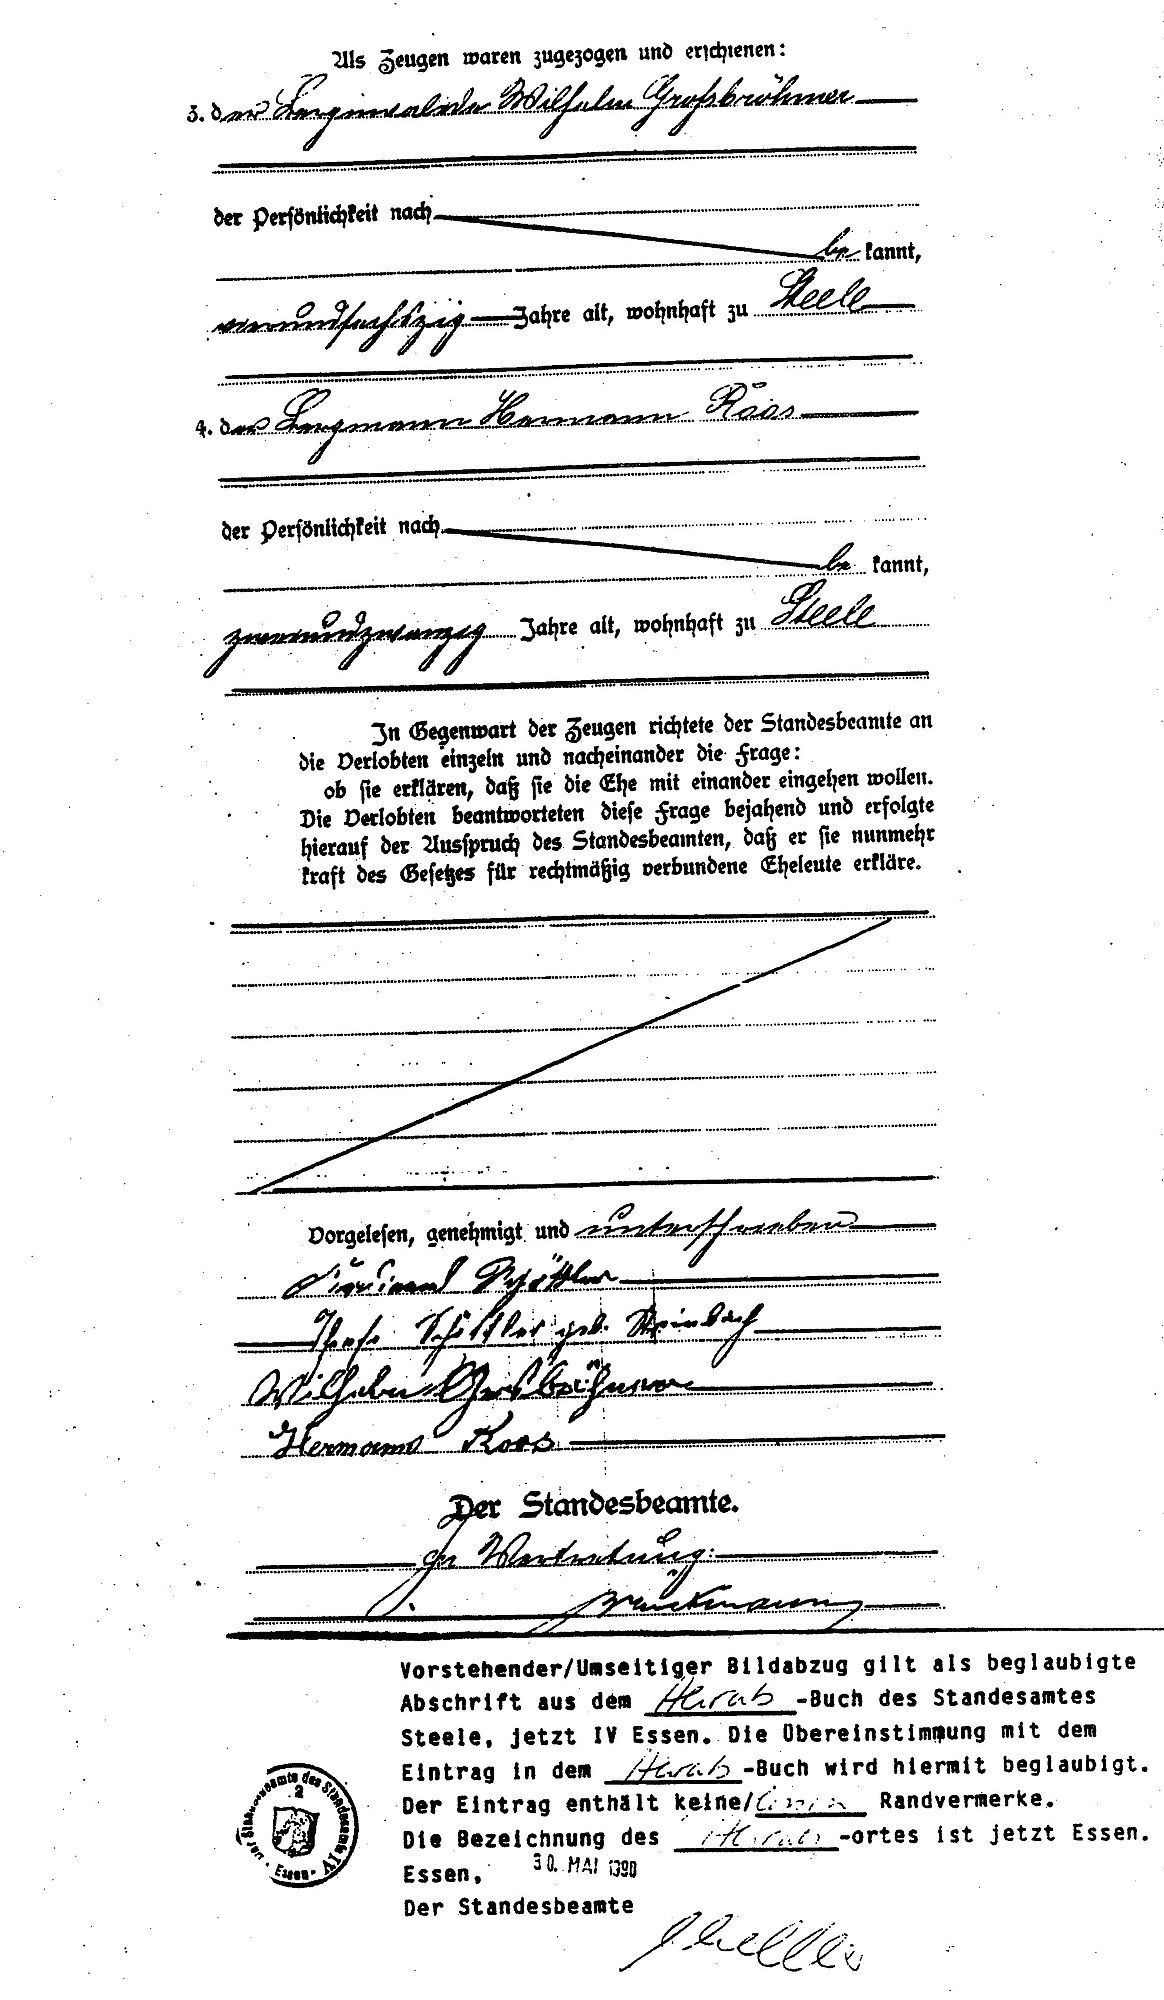 Als Zeugen waren zugezogen und erschienen:
3. der Berginvalide Wilhelm Großbröhmer
der Persönlichkeit nach
be kannt,
vierundsechszig Jahre alt, wohnhaft zu Steele
4. der Bergmann Hermann Röos
der Persönlichkeit nach
be kannt,
zweiundzwanzig Jahre alt, wohnhaft zu Steele
In Gegenwart der Zeugen richtete der Standesbeamte an
die Verlobten einzeln und nacheinander die Frage:
ob sie erklären, daß sie die Ehe mit einander eingehen wollen.
Die Verlobten beantworteten diese Frage bejahend und erfolgte
hierauf der Ausspruch des Standesbeamten, daß er sie nunmehr
kraft des Gesetzes für rechtmäßig verbundene Eheleute erkläre.
Vorgelesen, genehmigt und unterschrieben
Ferdinand Schöttler
Schöttler geb. Steinbach
Wilhelm Großbröhmer
Hermann Koos
Der Standesbeamte.
In Vertretung:
Vorstehender/Umseitiger Bildabzug gilt als beglaubigte
Abschrift aus dem Heirats -Buch des Standesamtes
Steele, jetzt IV Essen. Die Übereinstimmung mit dem
Eintrag in dem Heirats -Buch wird hiermit beglaubigt.
Der Eintrag enthält keine/ Randvermerke.
Die Bezeichnung des Heirats -ortes ist jetzt Essen.
Essen, 30. MAI 1990
Der Standesbeamte
Der Standesbeamte des Standesamts IV
2
Essen